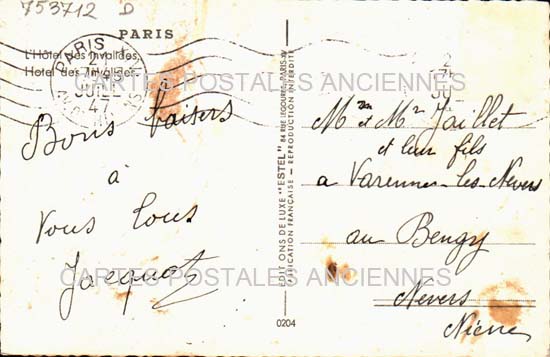 753712 D
PARIS
L'Hôtel des Invalides
Hotel des Invalides
PARIS
47
CARTES POSTALES ANCIENNES
Bons baisers
à
Vous tous
Jacquot
EDITIONS DE LUXE "ESTEL"
FABRICATION FRANÇAISE - REPRODUCTION INTERDITE
Mme et Mr Jaillet
et leur fils
a Varennes-les-Nevers
au Bengy
Nevers
Nièvre
CARTES POSTALES ANCIENNES
0204